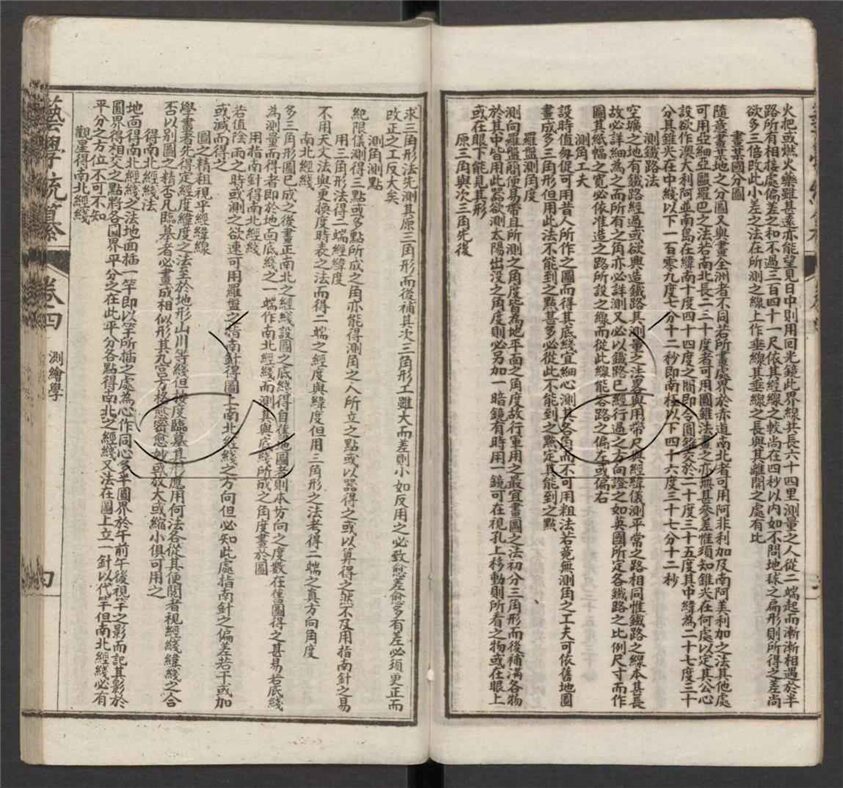 火把或燃火藥雖其遠亦能望見日中則用回光鏡此界線共長六十四里測量之人從二端起而漸漸相遇於半
路所有相接處偏差之和不過三百四十一尺依其經線之較尚在四秒以內如不問地球之扁形則所得之差尚
欲多三倍卽此小差之法在所測之線上作垂線其垂線之長與其離開之處有比
畫某國分圖
隨意畫某地之分圖又與畫全洲者不同若所畫處界於赤道南北者可用阿非利加及南阿美利加之法其他處
可用亞細亞歐羅巴之法若南北長二三十度者可用圓錐法畫之亦無甚參差惟須知錐尖在何處以定其公心
設欲作澳大利阿並南島在緯南十度四十四度之間卽令圓錐交於二十度三十五度其中緯為二十七度三十
分其錐尖在中線以下一百零九度七分十二秒卽南極以下四十六度三十七分十二秒
測鐵路法
空曠之地有鐵路經過或欲興造鐵路其測量之法畧與用帶尺與經緯儀測平常之路相同惟鐵路之線本甚長
故必詳細為之而所有之角亦必詳測又必以鐵路已經行過之方向證之如英國所定各鐵路之比例尺寸而作
圖其紙幅之寬必依准造之路所設之線而從此線能容路之偏左或偏右
測角工夫
設時值每促可用昔人所作之圖而得其底線宜細心測其各角而不可用粗法若竟無測角之工夫可依舊地圖
畫成多三角形但用此法不能到之點甚多必從此不能到之點定其能到之點
羅盤測角度
測向羅盤簡便易帶且所測之角度皆為地平面之角度故行軍用之最宜畫圖之法初分三角形而後補滿各物
於其中皆用此器欲測太陽出沒之角度則必另加一暗鏡有時用一鏡可在視孔上移動則所看之物或在眼上
或在眼下能見其形
原三角與次三角先後
求三角形法先測其原三角形而後補其次三角形工雖大而差則小如反用之必致愈差愈多有差必須更正而
改正之工反大矣
測角測點
紀限儀測得三點或多點所成之角亦能得測角之人所立之點或以器得之或以算得之然不及用指南針之易
用三角形法得二端經緯度
不用天文法與更換度時表之法而得二端之經度與緯度但用三角形之法考得二端之真方向角度
南北經線
多三角形圖已成之後畫正南北之經綫設圖之底綫得自舊地圖者則本方向之度數在舊圖得之甚易若底綫
為測量而得者卽於地面底綫之一端作南北經綫而測其與底綫所成之角度畫於圖
用指南針得南北經綫
若值陰雨之時或測之欲速可用羅盤之指南針得圖上南北經綫之方向但必知此處指南針之偏差若干或加
或減而得之
圖之精粗視乎經緯線
學畫者先得定經度緯度之法至於地形山川等綫但按度臨摹其形應用何法各從其便閱者視經綫緯綫之合
否以別圖之精否凡臨摹者必畫成相似形其九宮方格愈密愈妙或放大或縮小俱可用之
得南北經綫法
地面得南北經綫之法地面插一竿卽以竿所插之處為心作同心多半圓界於午前午後視竿之影而記其影於
圓界得相交之點將各圓界平分之在此平分各點得南北之經綫又法在圖上立一針以代竿但南北經綫必有
平分之方位不可不知
觀星得南北經綫
藝學統纂
卷四
測繪學
四